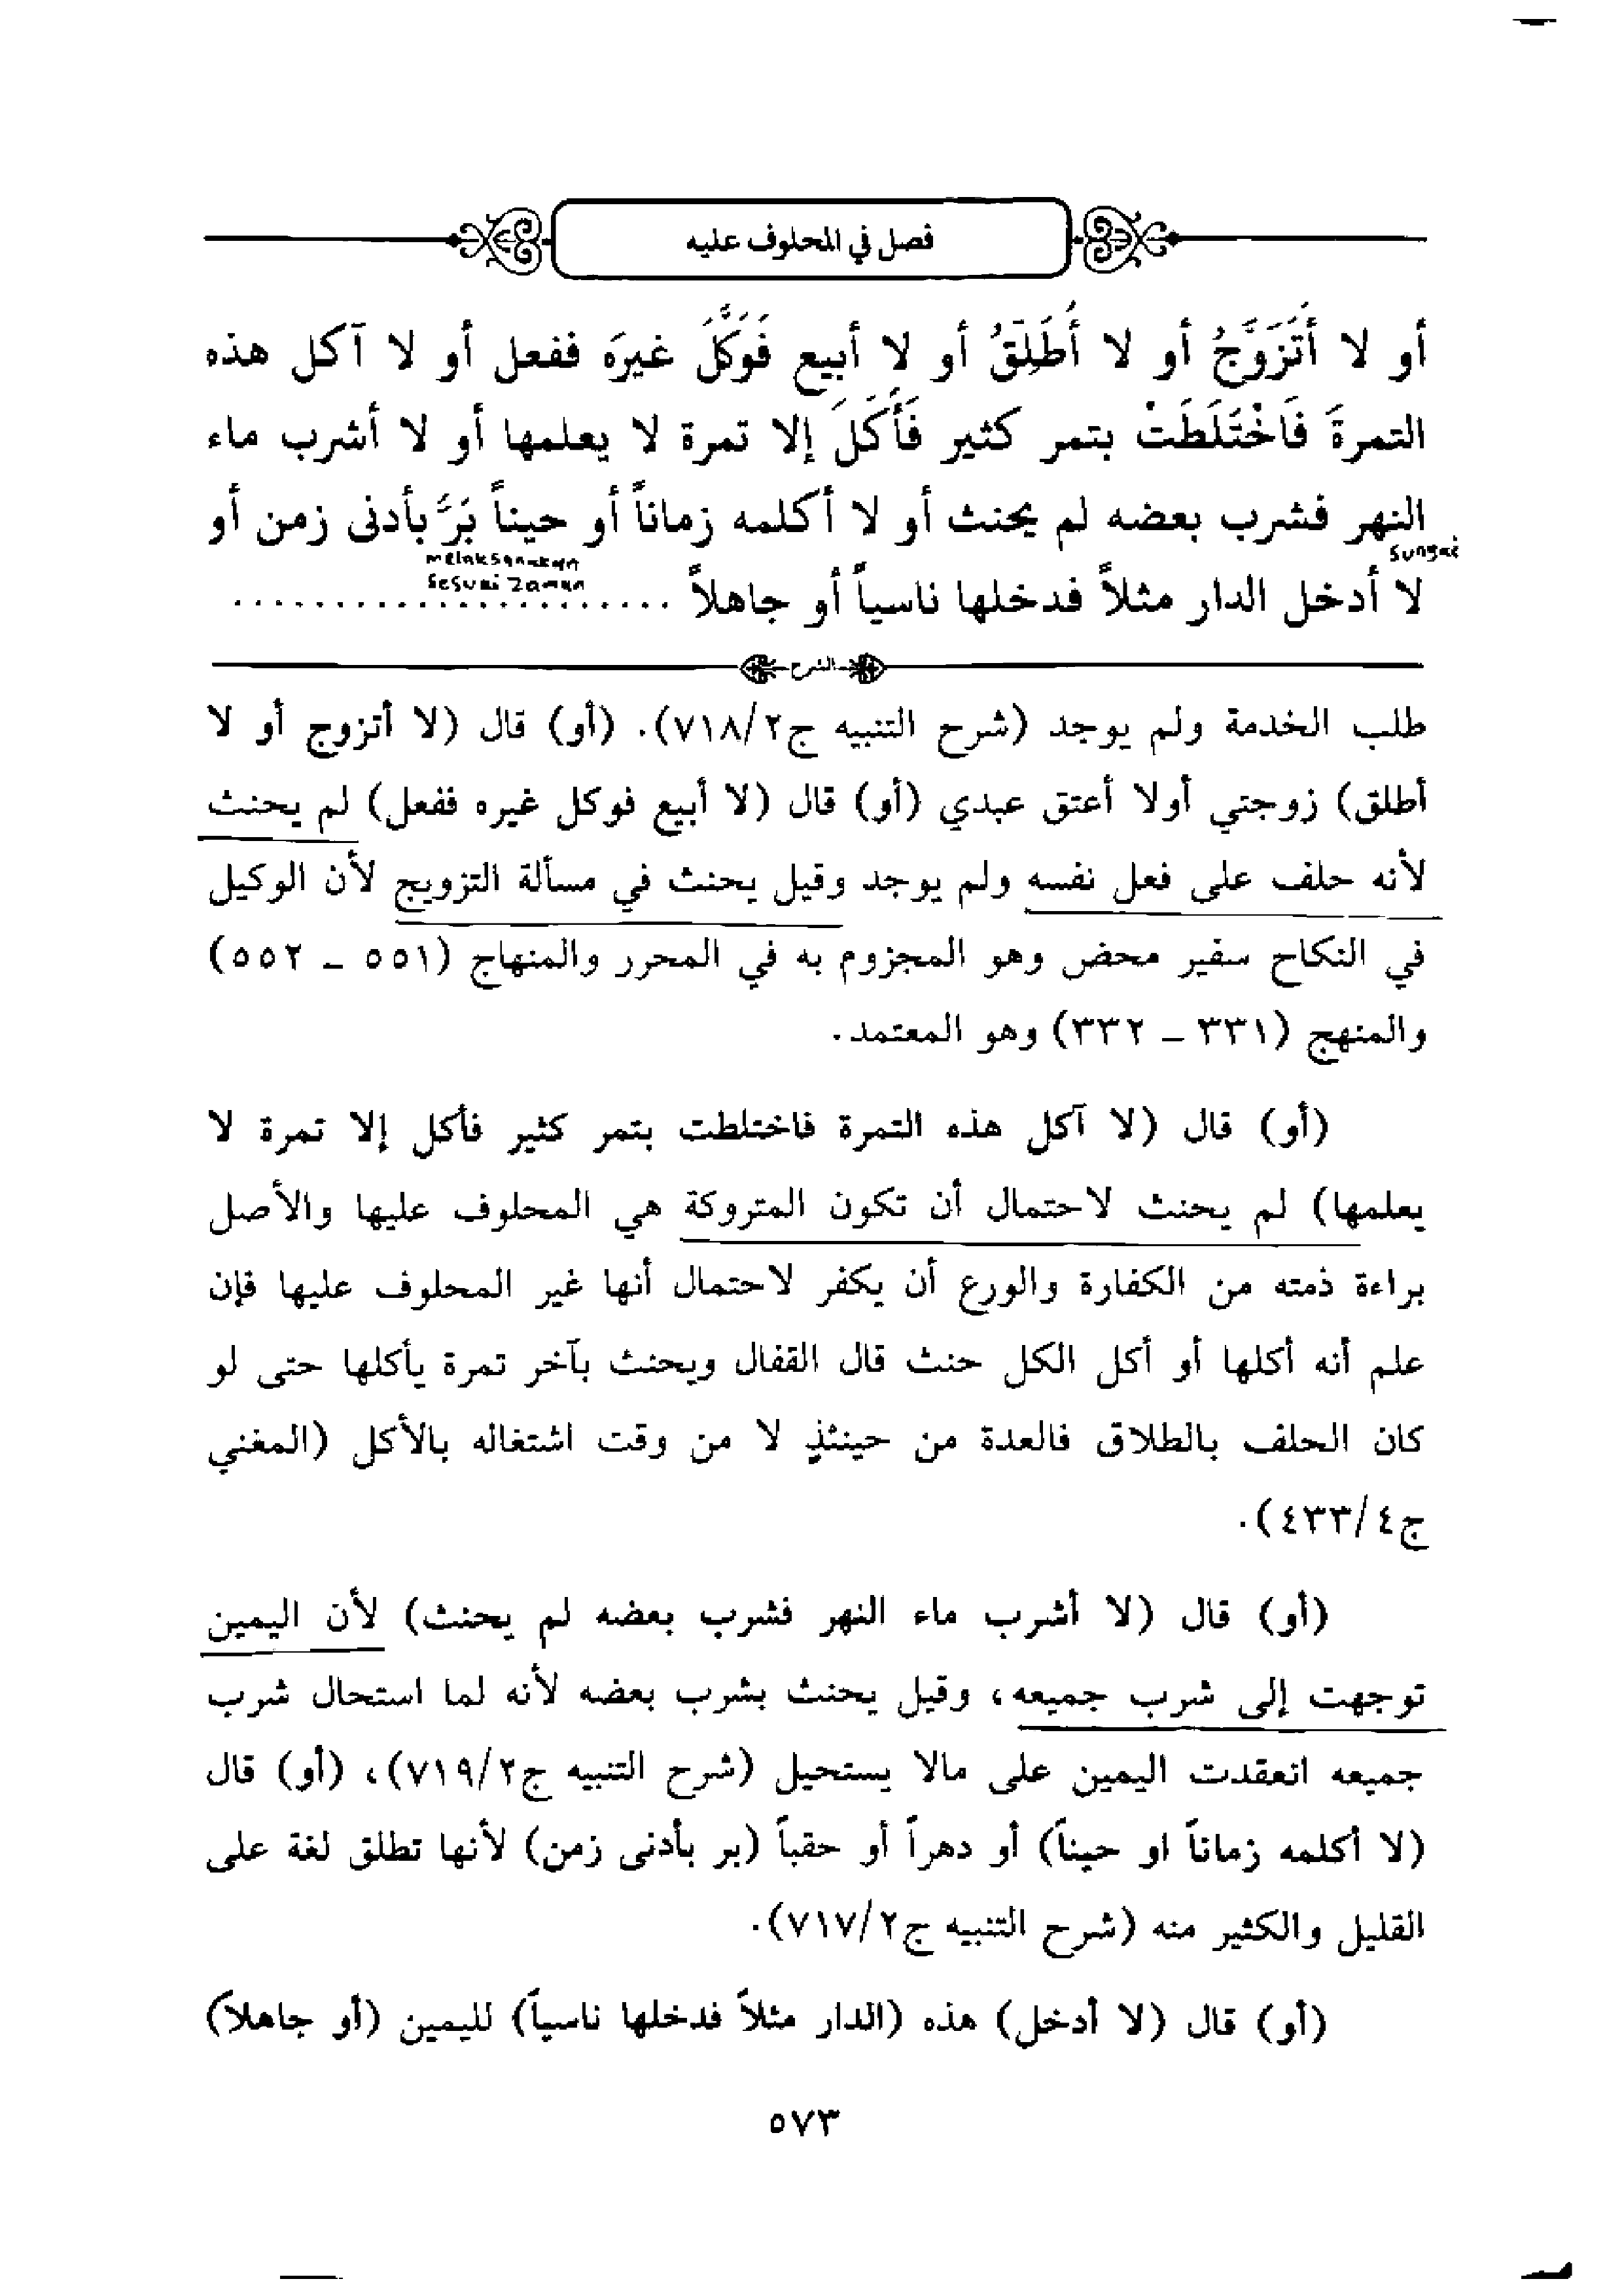 فصل في المحلوف عليه
أو لا أَتَزَوَّجُ أو لا أُطَلِّقُ أو لا أبيع فَوَكَّلَ غيرَه ففعل أو لا آكل هذه
التمرةَ فَاخْتَلَطَتْ بتمر كثير فَأَكَلَ إلا تمرة لا يعلمها أو لا أشرب ماء
النهر فشرب بعضه لم يحنث أو لا أكلمه زماناً أو حيناً بَرَّ بأدنى زمن أو
sungai
melaksanakan
sesuai zaman
لا أدخل الدار مثلاً فدخلها ناسياً أو جاهلاً ......................
الشرح
طلب الخدمة ولم يوجد (شرح التنبيه ج٢/٧١٨). (أو) قال (لا أتزوج أو لا
أطلق) زوجتي أولا أعتق عبدي (أو) قال (لا أبيع فوكل غيره ففعل) لم يحنث
لأنه حلف على فعل نفسه ولم يوجد وقيل يحنث في مسألة التزويج لأن الوكيل
في النكاح سفير محض وهو المجزوم به في المحرر والمنهاج (٥٥١ - ٥٥٢)
والمنهج (٣٣١ - ٣٣٢) وهو المعتمد.
(أو) قال (لا آكل هذه التمرة فاختلطت بتمر كثير فأكل إلا تمرة لا
يعلمها) لم يحنث لاحتمال أن تكون المتروكة هي المحلوف عليها والأصل
براءة ذمته من الكفارة والورع أن يكفر لاحتمال أنها غير المحلوف عليها فإن
علم أنه أكلها أو أكل الكل حنث قال القفال ويحنث بآخر تمرة يأكلها حتى لو
كان الحلف بالطلاق فالعدة من حينئذٍ لا من وقت اشتغاله بالأكل (المغني
ج٤/٤٣٣).
(أو) قال (لا أشرب ماء النهر فشرب بعضه لم يحنث) لأن اليمين
توجهت إلى شرب جميعه، وقيل يحنث بشرب بعضه لأنه لما استحال شرب
جميعه انعقدت اليمين على مالا يستحيل (شرح التنبيه ج٢/٧١٩)، (أو) قال
(لا أكلمه زماناً او حيناً) أو دهراً أو حقباً (بر بأدنى زمن) لأنها تطلق لغة على
القليل والكثير منه (شرح التنبيه ج٢/٧١٧).
(أو) قال (لا أدخل) هذه (الدار مثلاً فدخلها ناسياً) لليمين (أو جاهلاً)
٥٧٣